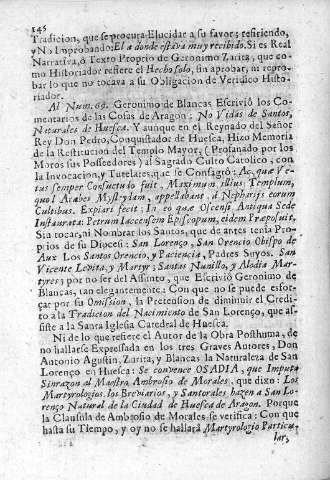 145
Tradicion, que se procura Elucidar a su favor; refiriendo,
y No Improbando: El a donde estava muy recibido. Si es Real
Narrativa, ò Texto Proprio de Geronimo Zarita, que co-
mo Historiador refiere el Hecho solo, sin aprobar, ni repro-
bar lo que no tocava a su Obligacion de Veridico Histo-
riador.
Al Num. 69. Geronimo de Blancas Escrivió los Co-
mentarios de las Cosas de Aragon; No Vidas de Santos,
Naturales de Huesca. Y aunque en el Reynado del Señor
Rey Don Pedro, Conquistador de Huesca, Hizo Memoria
de la Restitucion del Templo Mayor (Profanado por los
Moros sus Possedores) al Sagrado Culto Catolico, con
la Invocacion, y Tutelares, que se Consagrò: Ac, quæ Ve-
tus semper Consuetudo fuit, Maximum illius Templum,
quod Arabes appellabant, à Nephariis eorum
Cultibus. Expiari fecit: In eo quæ Oscensi Antiqua Sede
Instaurata: Petrum Iaccensem Episcopum, eidem Præposuit,
Sin tocar, ni Nombrar los Santos, que de antes tenia Pro-
prios de su Diocesi: San Lorenço, San Orencio Obispo de
Aux Los Santos Orencio, y Paciencia, Padres Suyos. San
Vicente Levita, y Martyr; Santas Nunillo, y Alodia Mar-
tyres; por no ser del Assunto, que Escrivió Geronimo de
Blancas, tan elegantemente: Con que no se puede esfor-
çar por su Omission, la Pretension de diminuir el Credi-
to a la Tradicion del Nacimiento de San Lorenço, que as-
siste a la Santa Iglesia Catedral de Huesca.
Ni de lo que refiere el Autor de la Obra Posthuma, de
no hallarse Expressada en los tres Graves Autores, Don
Antonio Agustin, Zarita, y Blancas la Naturaleza de San
Lorenço en Huesca: Se convence OSADIA, que Imputa
Sinrazon al Maestro Ambrosio de Morales, que dixo: Los
Martyrologios, los Breviarios, y Santorales, hazen a San Lo-
renço Natural de la Ciudad de Huesca de Aragon. Porque
la Clausula de Ambrosio de Morales se verifica: Con que
hasta su Tiempo, y oy no se hallarà Martyrologio Particu-
lar,